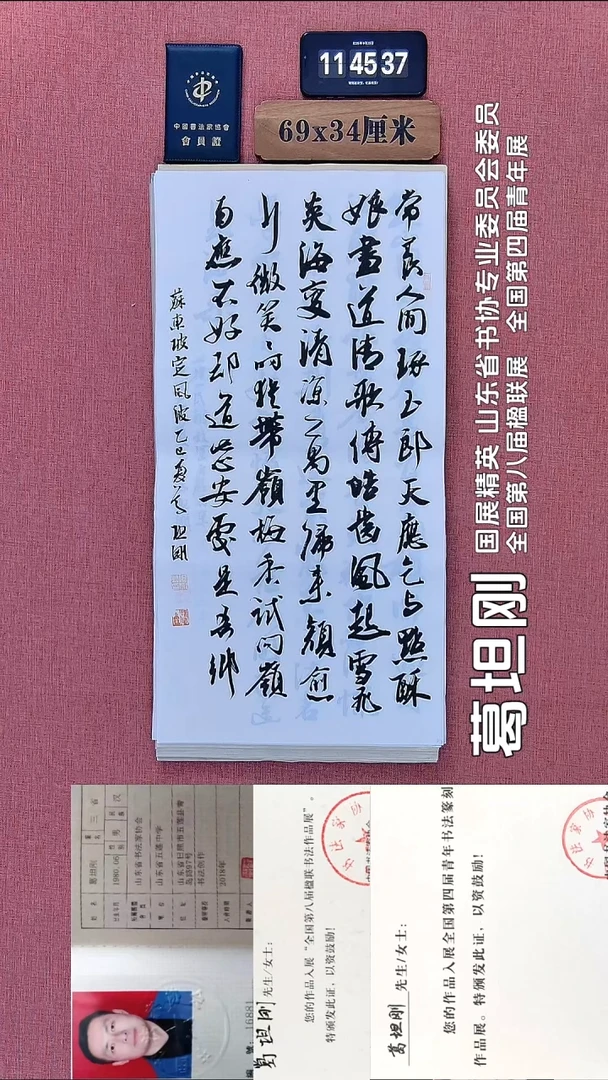 中國書法家協會
會員證
11 45 37
69x34厘米
常羨人间琢玉郎天應乞与點酥
娘盡道清歌傳皓齒風起雪飛
炎海变清凉萬里歸来顏愈
少微笑〻时猶帶嶺梅香试问嶺
南應不好却道心安處是吾鄉
蘇東坡定風波乙巳夏 坦剛
国展精英 山东省书协专业委员会委员
全国第八届楹联展 全国第四届青年展
葛坦刚
姓名 葛坦刚
山东省书法家协会
山东省五莲中学
书法创作
2018年
16881
葛坦刚 先生/女士：
您的作品入展“全国第八届楹联书法作品展”。
特颁发此证，以资鼓励！
葛坦刚 先生/女士：
您的作品入展全国第四届青年书法篆刻
作品展。特颁发此证，以资鼓励！